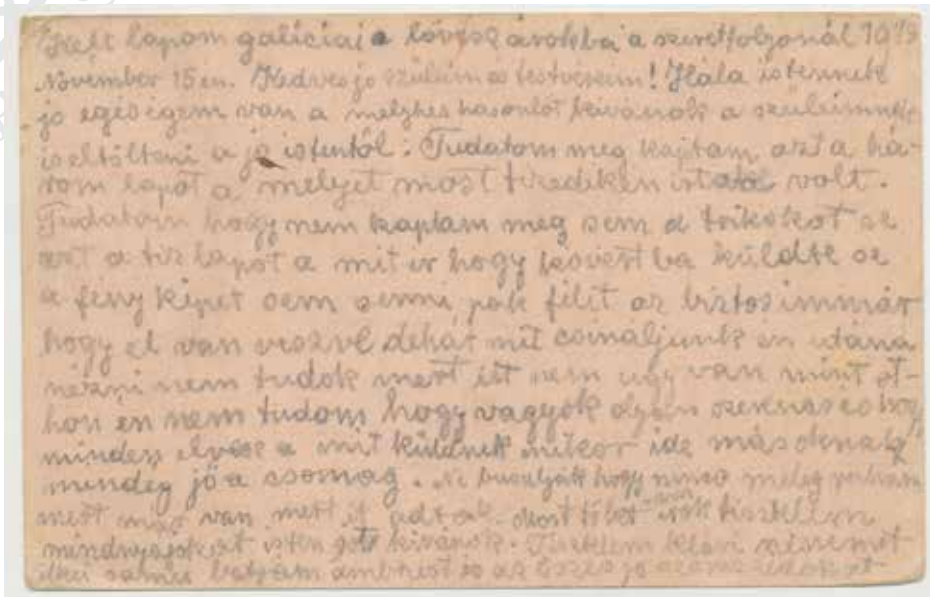 Kelt lapom galiciai a lövész árokba a szeretfolyonál 19
November 15 én. Kedves jo szüleim és testvéreim! Hála istennek
jo egéségem van a melyhes hasonlót kivánok a szüleimnek
is eltölteni a jó istentöl. Tudatom meg kaptam azt a há-
rom lapot a melyet most tizedikén volt.
Tudatom hogy nem kaptam meg sem a trikokot se
azt a tiz lapot a mit ir hogy küldte se
a feny kepet sem semmi pak félit az biztos immár
hogy el van veszve dehát mit csinaljunk én utána
nézni nem tudok mert itt nem ugy van mint ot-
hon én nem tudom hogy vagyok olyan hogy
minden elvesz a mit küldnek mikor ide másoknak
mindég jö a csomag. Ne busuljak hogy nincs meleg ruhám
mert már van mert it adtak. Most töbet nem irok tisztelem
mindnyájokat isten kivánok. Tisztelem Klári nénémet
batyám és az összes jo